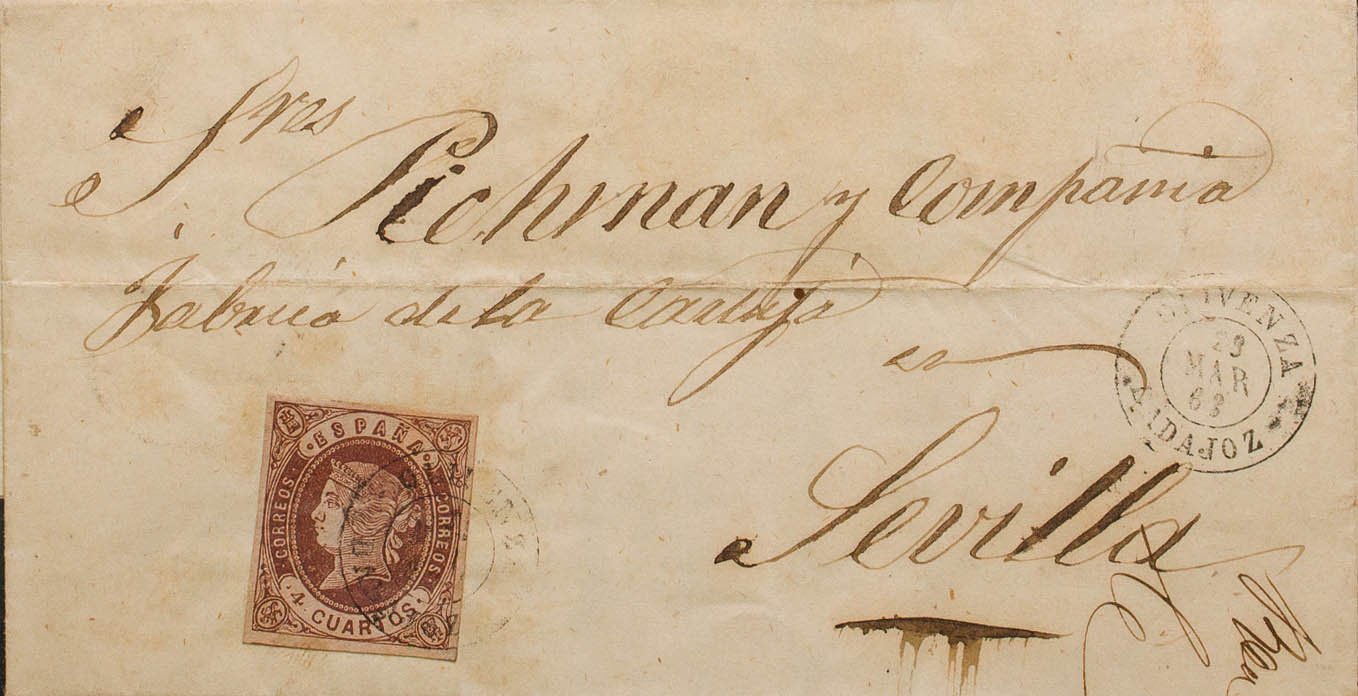 Sres
Pichman y Compañia
Fabrica de la Cartuja
en
Sevilla
OLIVENZA
23
MAR
63
BADAJOZ
ESPAÑA
CORREOS
CORREOS
4 CUARTOS